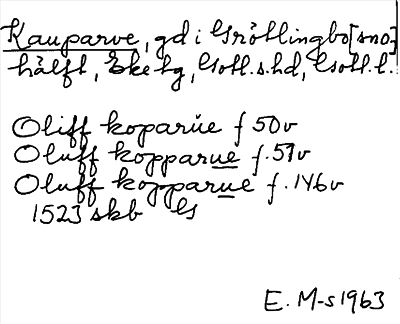 Kauparve, gd i Grötlingbo [sno]
hälft, Eke tg, Gotl. s. hd, Gotl. l.
Oliff koparŭe f 50v
Oluff kopparue f. 57v
Oluff kopparue f. 146v
1523 skb G
E. M-s 1963